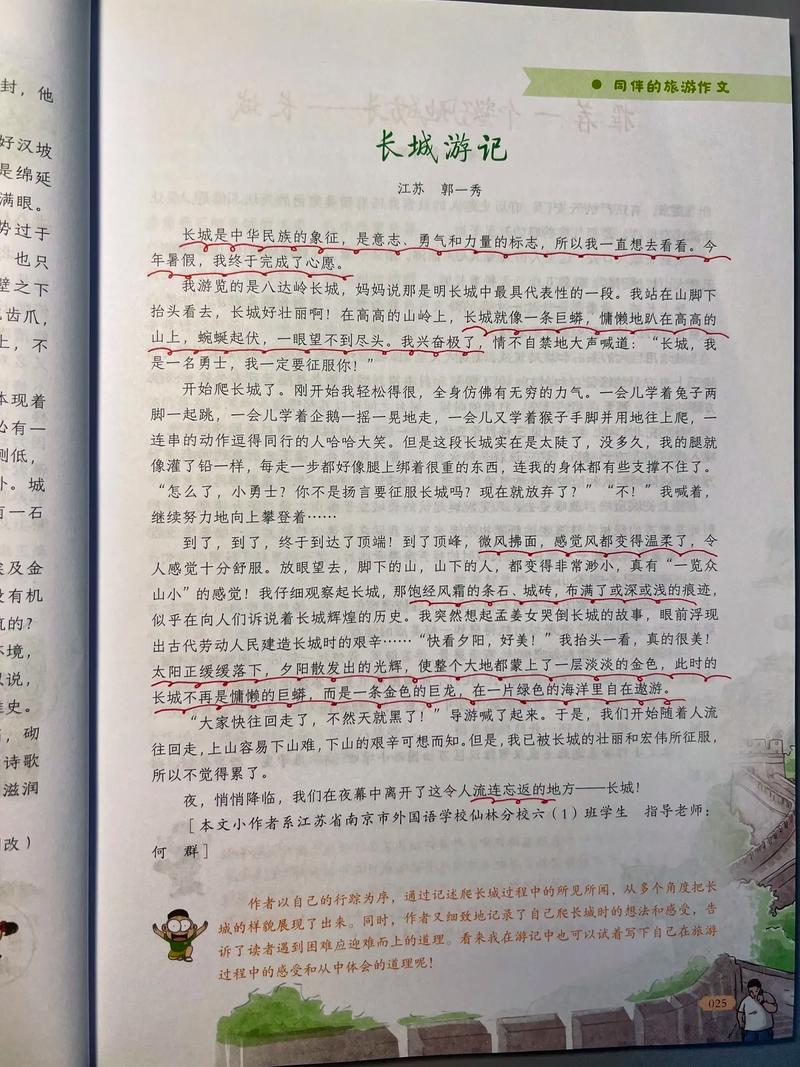 封，他
好汉坡
是绵延
满眼。
势过于
也只
壁之下
齿爪，
上，不
体现着
必有一
则低，
外。城
有一石
埃及金
没有机
筑的？
环境，
以说，
史。
，砌
诗歌
滋润
改）
● 同伴的旅游作文
长城游记
江苏 郭一秀
长城是中华民族的象征，是意志、勇气和力量的标志，所以我一直想去看看。今
年暑假，我终于完成了心愿。
我游览的是八达岭长城，妈妈说那是明长城中最具代表性的一段。我站在山脚下
抬头看去，长城好壮丽啊！在高高的山岭上，长城就像一条巨蟒，慵懒地趴在高高的
山上，蜿蜒起伏，一眼望不到尽头。我兴奋极了，情不自禁地大声喊道：“长城，我
是一名勇士，我一定要征服你！”
开始爬长城了。刚开始我轻松得很，全身仿佛有无穷的力气。一会儿学着兔子两
脚一起跳，一会儿学着企鹅一摇一晃地走，一会儿又学着猴子手脚并用地往上爬，一
连串的动作逗得同行的人哈哈大笑。但是这段长城实在是太陡了，没多久，我的腿就
像灌了铅一样，每走一步都好像腿上绑着很重的东西，连我的身体都有些支撑不住了。
“怎么了，小勇士？你不是扬言要征服长城吗？现在就放弃了？”“不！”我喊着，
继续努力地向上攀登着……
到了，到了，终于到达了顶端！到了顶峰，微风拂面，感觉风都变得温柔了，令
人感觉十分舒服。放眼望去，脚下的山，山下的人，都变得非常渺小，真有“一览众
山小”的感觉！我仔细观察起长城，那饱经风霜的条石、城砖，布满了或深或浅的痕迹，
似乎在向人们诉说着长城辉煌的历史。我突然想起孟姜女哭倒长城的故事，眼前浮现
出古代劳动人民建造长城时的艰辛……“快看夕阳，好美！”我抬头一看，真的很美！
太阳正缓缓落下，夕阳散发出的光辉，使整个大地都蒙上了一层淡淡的金色，此时的
长城不再是慵懒的巨蟒，而是一条金色的巨龙，在一片绿色的海洋里自在遨游。
“大家快往回走了，不然天就黑了！”导游喊了起来。于是，我们开始随着人流
往回走，上山容易下山难，下山的艰辛可想而知。但是，我已被长城的壮丽和宏伟所征服，
所以不觉得累了。
夜，悄悄降临，我们在夜幕中离开了这令人流连忘返的地方——长城！
［本文小作者系江苏省南京市外国语学校仙林分校六（1）班学生 指导老师：
何 群］
作者以自己的行踪为序，通过记述爬长城过程中的所见所闻，从多个角度把长
城的样貌展现了出来。同时，作者又细致地记录了自己爬长城时的想法和感受，告
诉了读者遇到困难应迎难而上的道理。看来我在游记中也可以试着写下自己在旅游
过程中的感受和从中体会的道理呢！
025